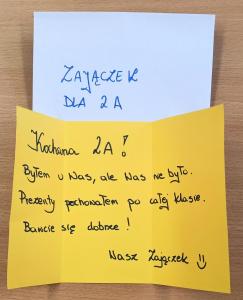 ZAJĄCZEK
DLA 2A
Kochana 2A!
Byłem u Was, ale Was nie było.
Prezenty pochowałem po całej klasie.
Bawcie się dobrze!
Wasz Zajączek